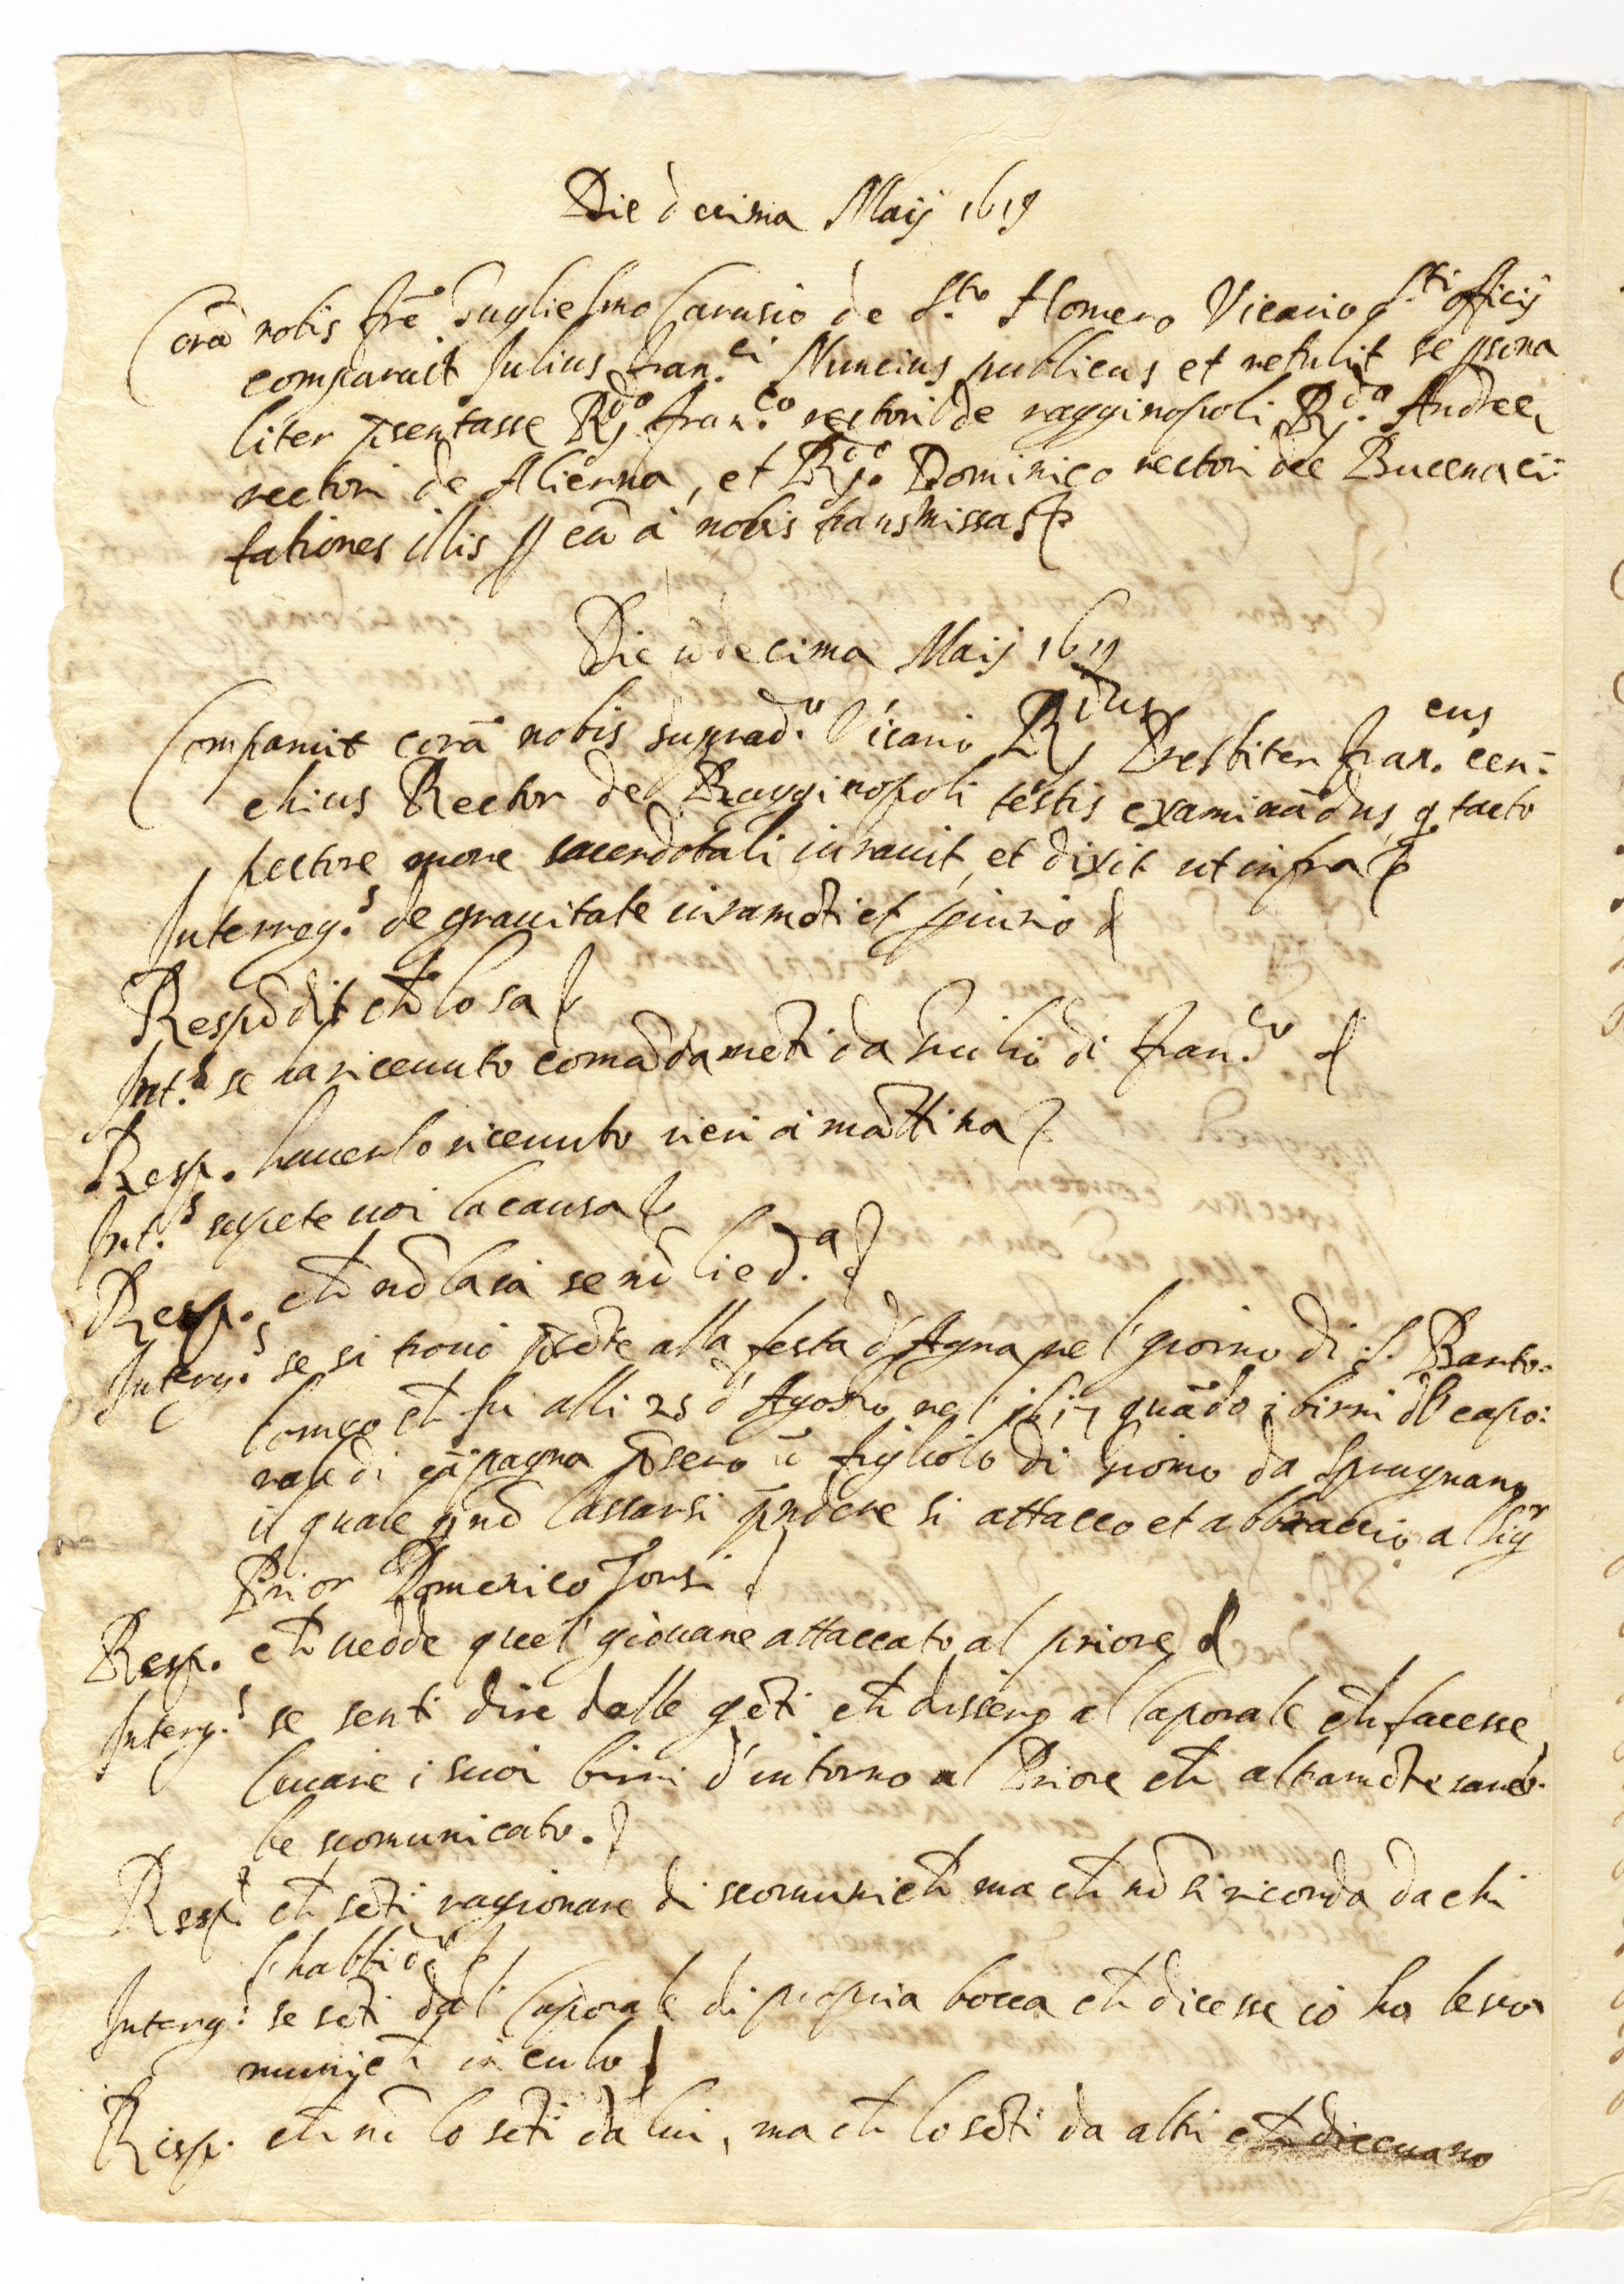 Die decima Maij 1619
Corã nobis frẽ Guglielmo Carusio de S.to Homero Vicario S.ti officij
comparuit Julius Fran.ci Nuncius publicus et retulit se psona
liter p̃sentasse R.do Fran.co rectori de ragginopoli R.do Andree
rectori de Alierna, et R.do Dominico rectori de Bucena ci=
tationes illis p eũ à nobis transmissas
Die ũdecima Maij 1619
Comparuit corã nobis suprad.o Vicario R.dus Presbiter Fran.cus cen=
chius Rector de Ragginopoli testis examinãdus, q tacto
pectore more sacerdotali iuravit, et dixit ut infra
Interrog.s de gravitate iuramẽti et piurio
Respõdit ch̃ lo sa
Int.s se ha ricevuto comãdamẽti da Giulio di Fran.co
Resp. haverlo ricevuto rieri a mattina
Int.s sapete voi la causa
Resp. ch̃ nõ la sà se nõ li è d.a
Interg.s se si trovò p̃sẽte alla festa d'Agna nel giorno di S. Barto=
lomeo ch̃ fu alli 25 d'Agosto nel 1617 quãdo i birri dl capo=
rale di cãpagna p̃sero ũ figliolo di Giomo da Sprugnano
il quale p nõ lassarsi p̃ndere si attacco et abbraccio al Sig.r
Prior Domenico Torsi
Resp. ch̃ vedde quel giovane attaccato al priore
Interg.s se senti dire dalle gẽti ch̃ dissero al Caporale ch̃ facesse
levare i suoi birri d'intorno al Priore ch̃ altramẽte sareb=
be scomunicato.
Resp. ch̃ sẽti ragionare di scomunich̃ ma ch̃ nõ si ricorda da chi
l'habbi d.o
Interg.s se sẽti dal Caporale di propria bocca ch̃ dicesse io ho le sco
munich̃ in culo
Resp. ch̃ nõ lo sẽti da lui, ma ch̃ lo sẽti da altri ch̃ dicevano